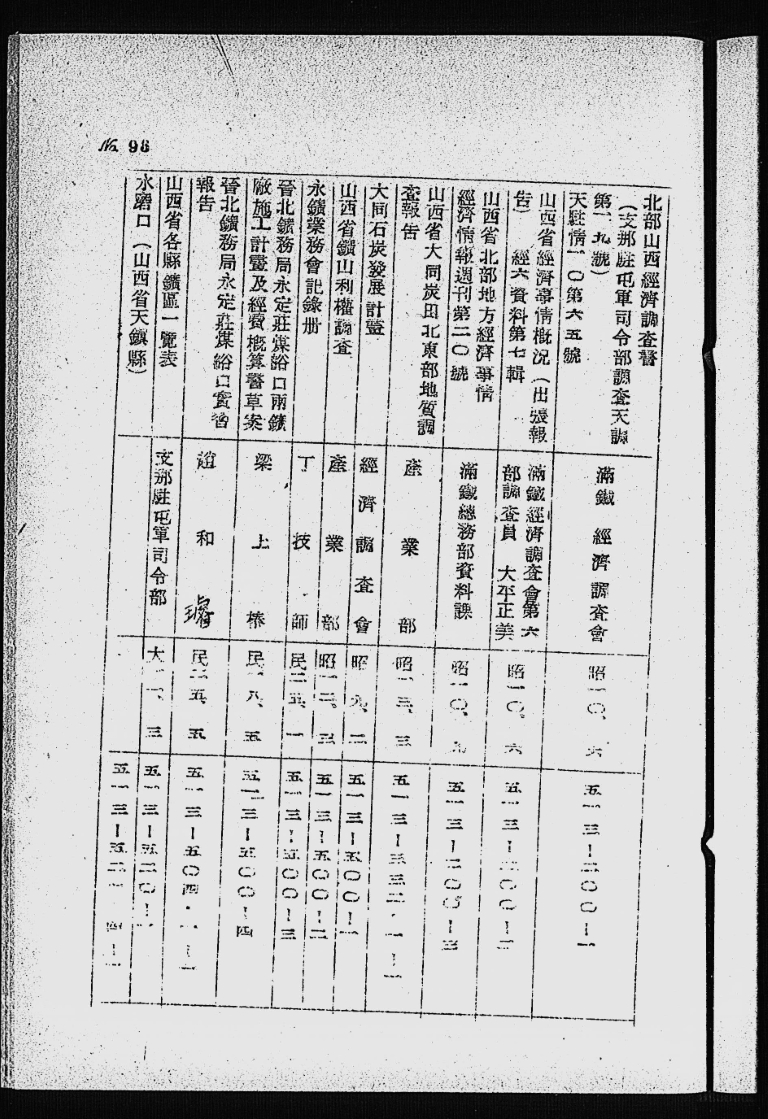 № 96
北部山西經濟調査書
(支那駐屯軍司令部調査天調
第一九號)
天駐情一〇第六五號
滿鐵經濟調査會
昭一〇、六
五一三ー二〇〇ー一
山西省經濟事情概況(出張報
告) 經六資料第七輯
滿鐵經濟調査會第六
部調査員 大平正美
昭一〇、六
五一三ー二〇〇ー二
山西省北部地方經濟事情
經濟情報週刊第二〇號
滿鐵總務部資料課
昭一〇、九
五一三ー二〇〇ー三
山西省大同炭田北東部地質調
査報告
產業部
昭一三、三
大同石炭發展計畫
經濟調査會
昭九、二
五一三ー五〇〇ー一
山西省鑛山利權調査
產業部
昭一二、三
五一三ー五〇〇ー二
永鑛業務會記錄册
丁技師
民二五、一
五一三ー五〇〇ー三
晉北鑛務局永定莊煤峪口兩鑛
廠施工計畫及經費概算書草案
梁上椿
民一八、五
五一三ー五〇〇ー四
晉北鑛務局永定莊煤峪口實習
報告
趙和
民二五、五
山西省各縣鑛區一覽表
支那駐屯軍司令部
大一一、三
五一三ー五二〇ー一
水磨口(山西省天鎭縣)